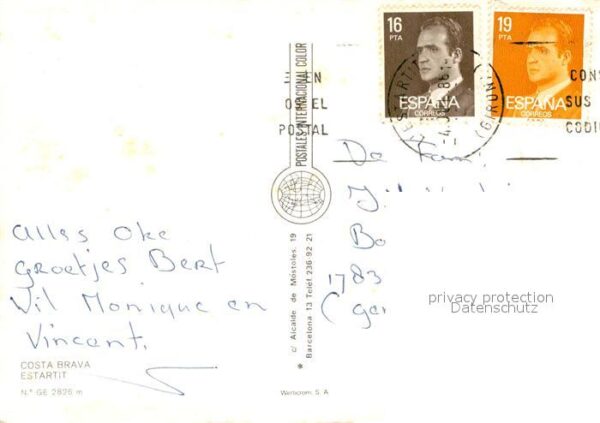 16
PTA
ESPAÑA
CORREOS
19
PTA
ESPAÑA
CORREOS
EN
EL
POSTAL
CONS
SUS
CODI
ESTARTIT
(GIRONA)
POSTALES INTERNACIONAL COLOR
c/ Alcalde de Móstoles, 19
Barcelona 13 Teléf. 236-92 21
Alles Oke
Groetjes Bert
Wil Monique en
Vincent.
COSTA BRAVA
ESTARTIT
N.º GE 2826 m
Da Fam
Bo
1783
privacy protection
Datenschutz